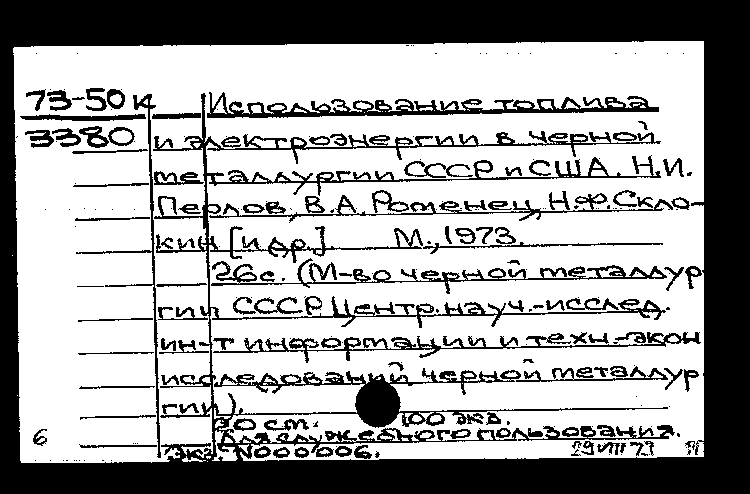 73-50к Использование топлива
3380 и электроэнергии в черной
металлургии СССР и США. Н.И.
Перлов, В.А. Роменец, Н.Ф. Скло-
кин [и др.] М., 1973.
26с. (М-во черной металлур-
гии СССР Центр. науч.-исслед.
ин-т информации и техн.-экон
исследований черной металлур-
гии).
30 см. 100 экз.
Для служебного пользования.
6 Экз. N000006. 29 VIII 73